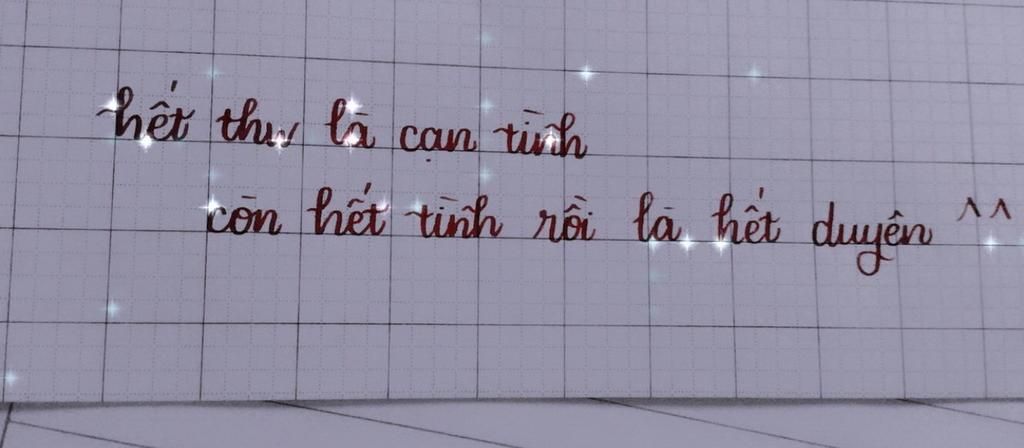 hết thư là cạn tình
còn hết tình rồi là hết duyên ^^